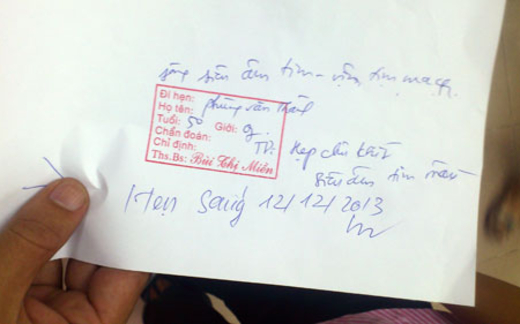 siêu âm tim - viện tim mạch.
Đi hẹn:
Họ tên: phùng văn Thắng
Tuổi: 50 Giới: g.
Chẩn đoán: TD: Hẹp chủ khít
Chỉ định: siêu âm tim
Ths.Bs: Bùi Chị Miền
Hẹn sáng 12/12/2013